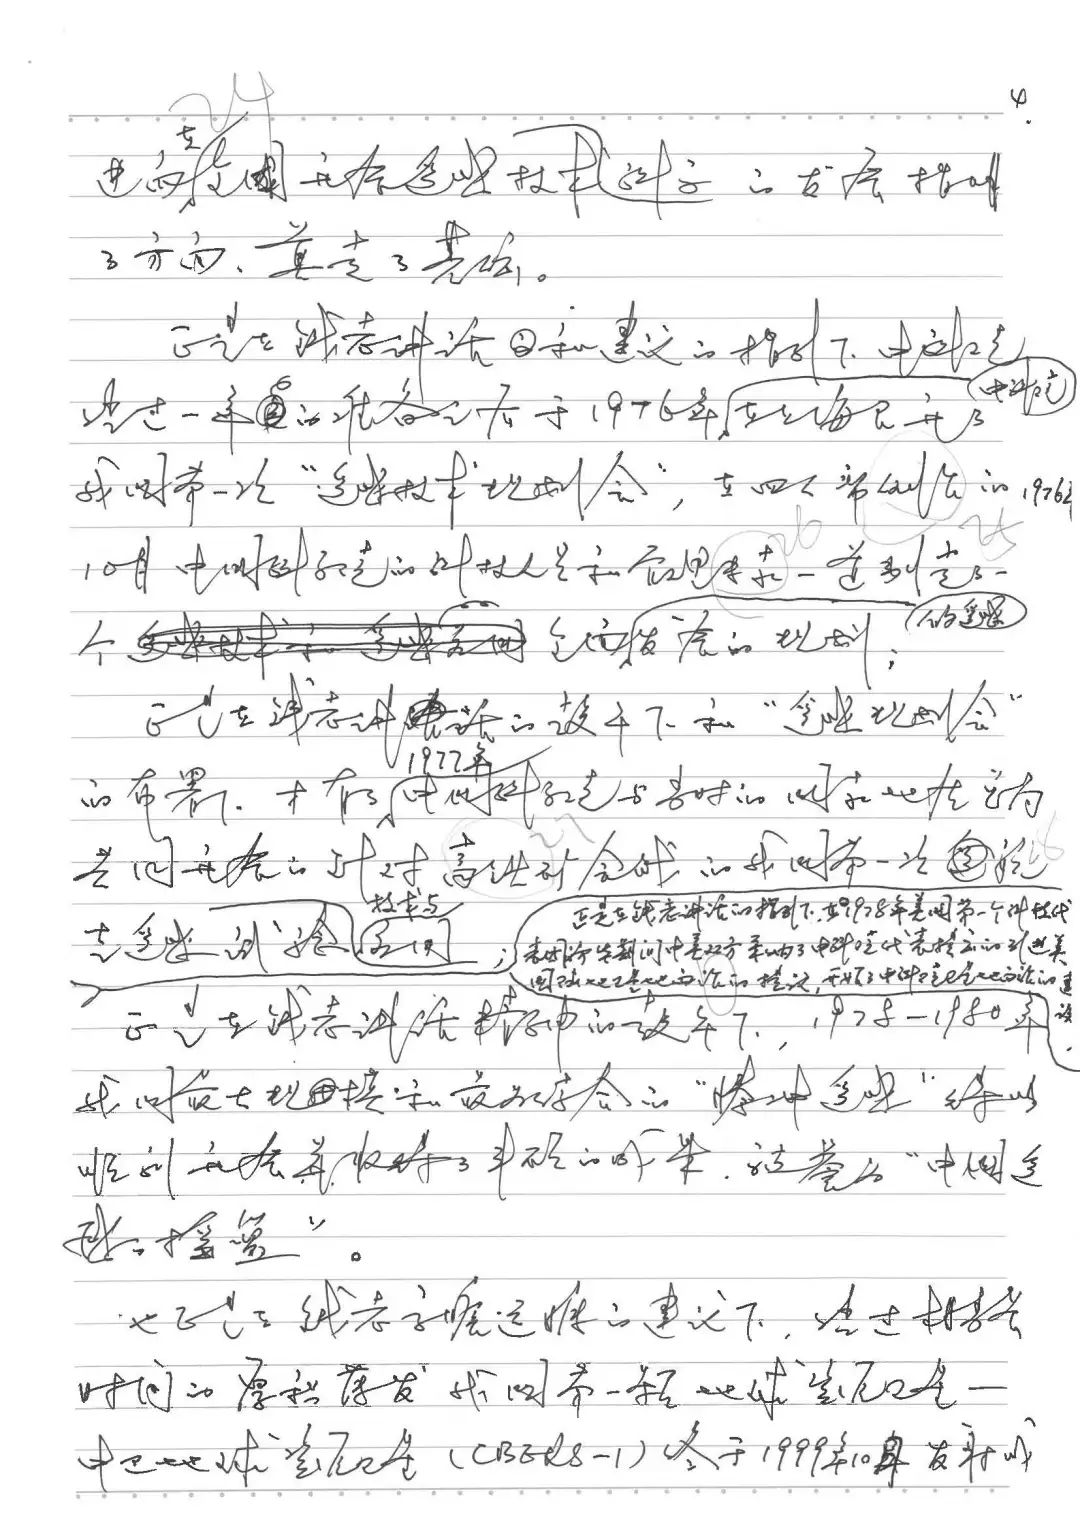 4.
进而在我国开展遥感技术科学的发展指明
了方向、奠定了基础。
正是在钱老讲话和建议的指引下，中科院
经过一年的准备之后于1976年在上海召开了
我国第一次“遥感技术规划会”，在四人帮倒台的1976年
10月中国科学院的科技人员和管理专家一道制定了一
个全面发展的遥感规划；
正是在钱老讲话的鼓舞下和“遥感规划会”
的布署下，才有了1977年中国科学院与当时的国家地质总局
共同开展的针对富铁矿会战的我国第一次航
空遥感试验 技术与应用；
正是在钱老讲话的指引下，在1978年美国第一个科技代
表团访华期间中美双方采纳了中科院代表提出的引进美
国陆地卫星地面站的建议，开始了中科院卫星地面站的建设。
正是在钱老讲话精神的鼓舞下，1978—1980年
我国最大规模和最为综合的“腾冲遥感”得以
顺利开展并收获了丰硕的成果，被誉为“中国遥
感的摇篮”。
也正是在钱老高瞻远瞩的建议下，经过相当长
时间的厚积薄发我国第一颗地球资源卫星—
中巴地球资源卫星（CBERS-1）终于1999年10月发射成